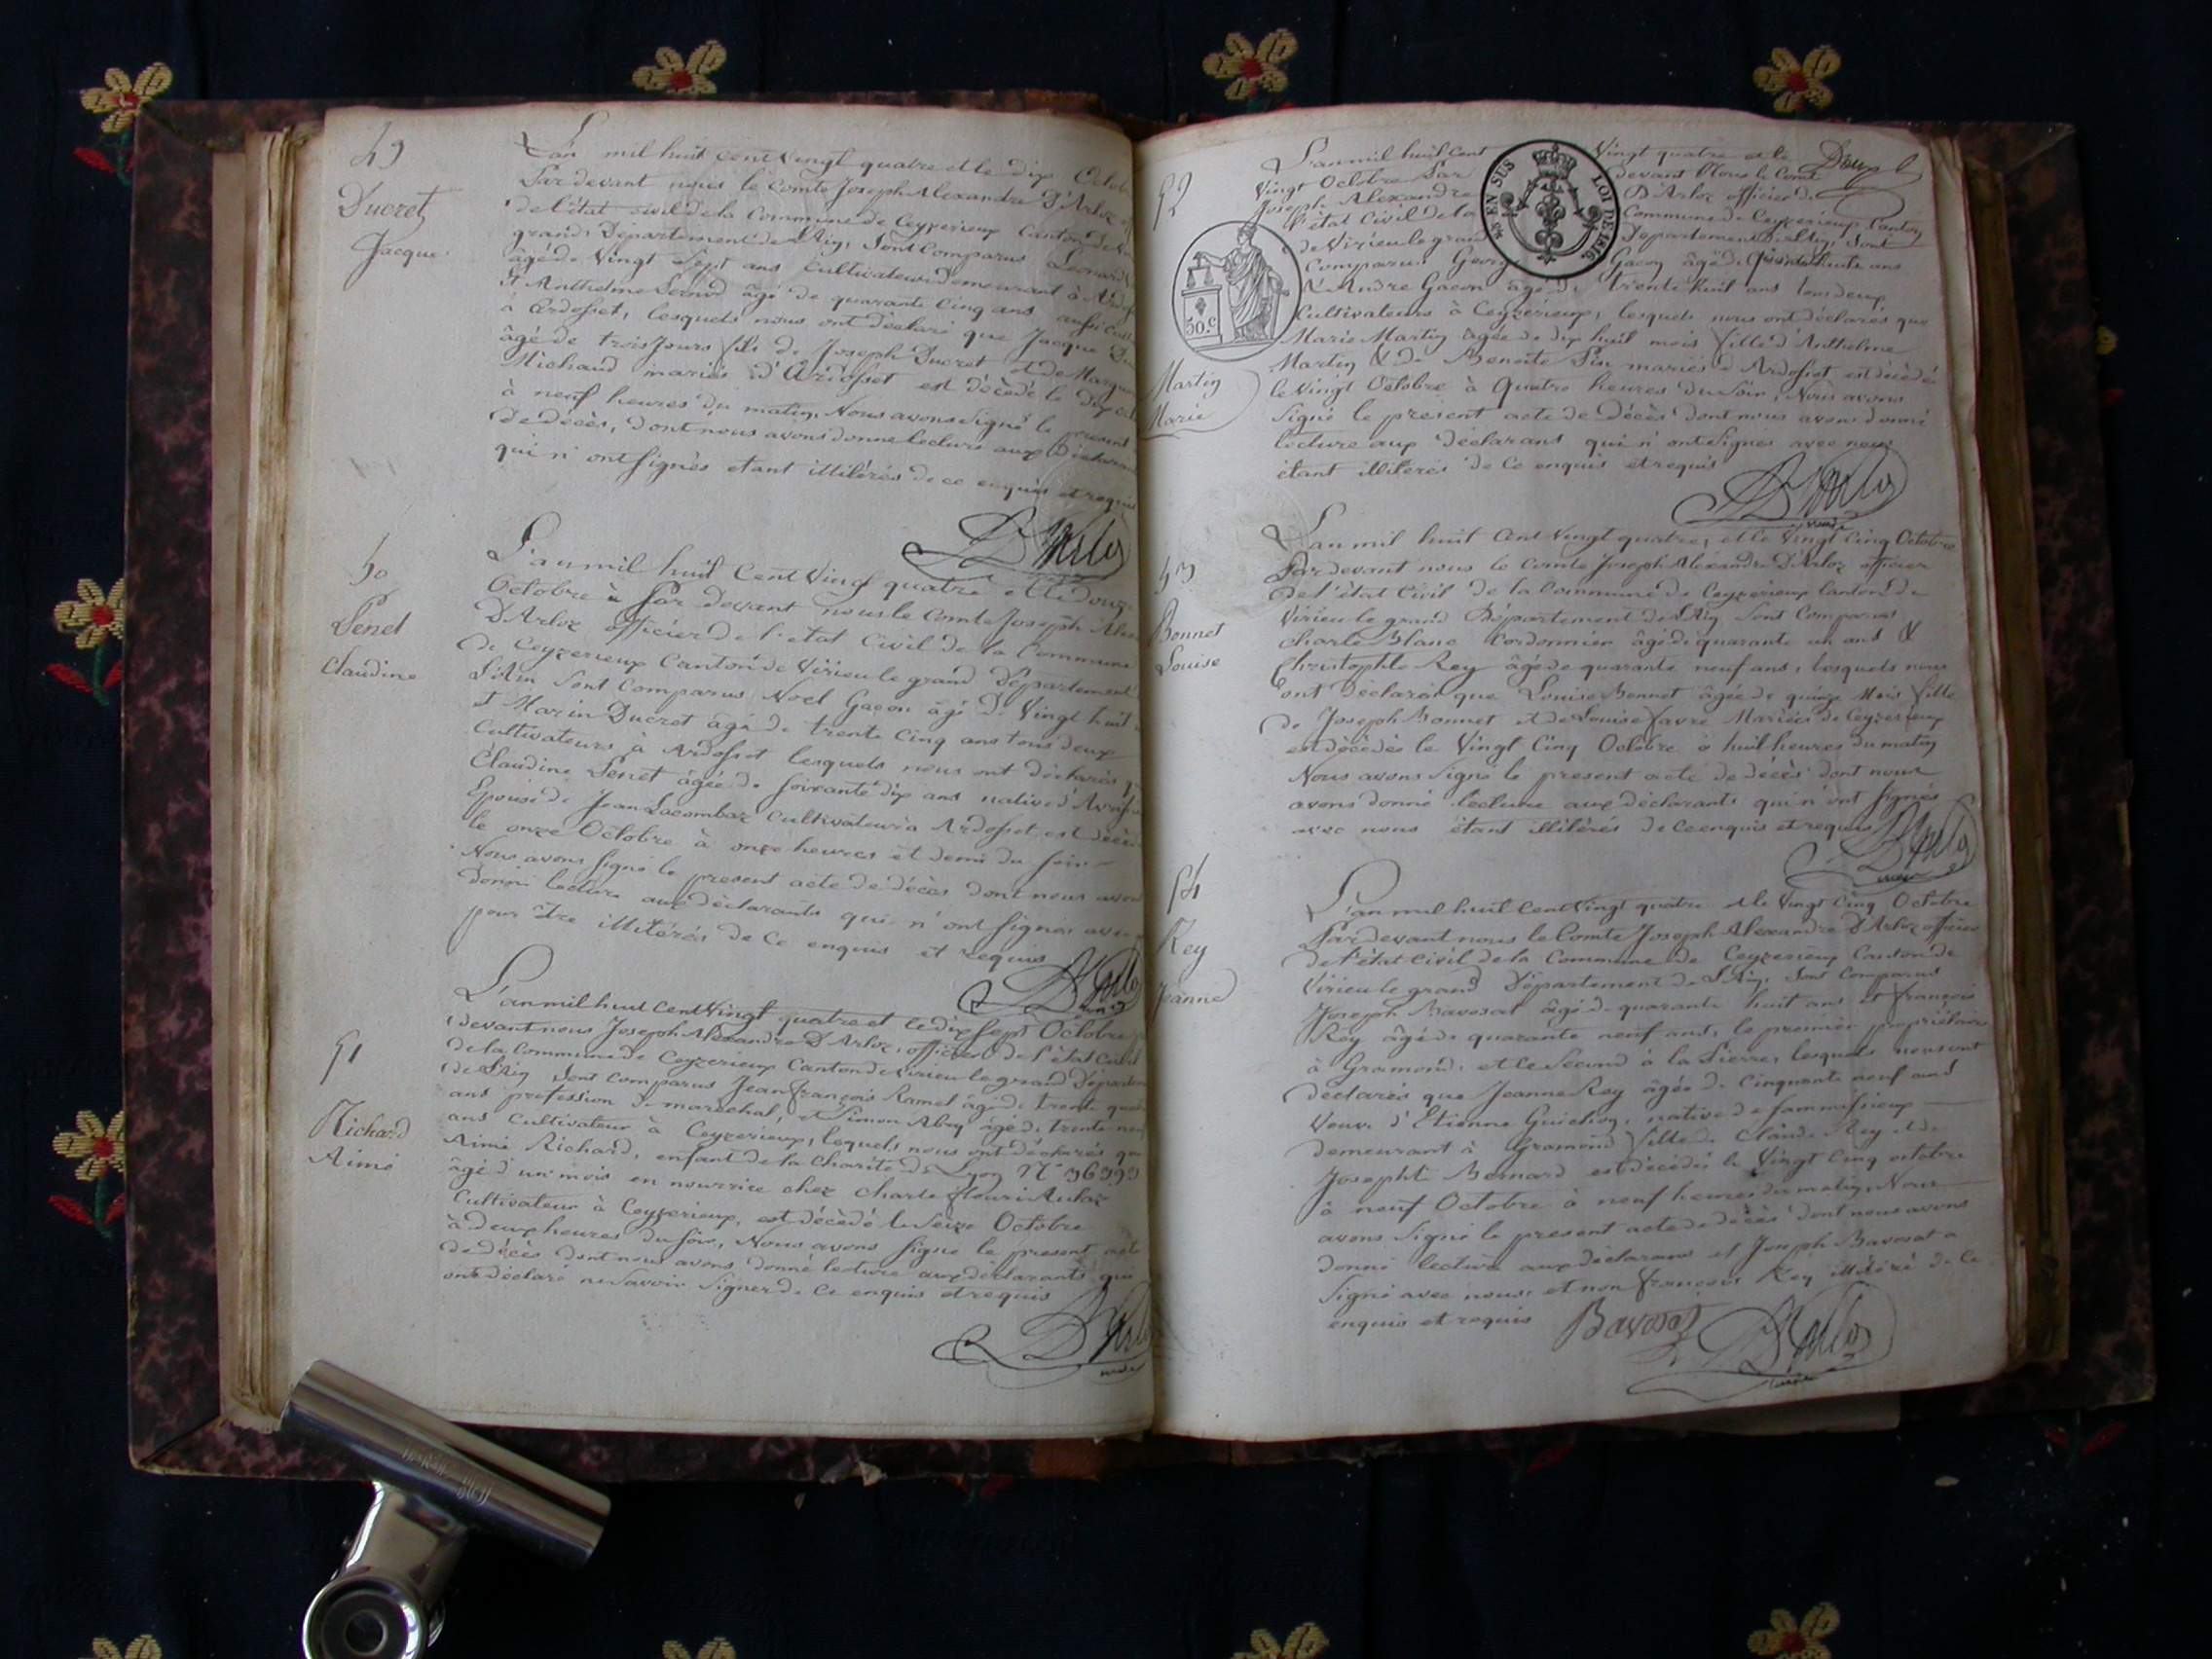 49
Ducret
Jacque
L'an mil huit cent vingt quatre et le dix Octob
Par devant nous le Comte Joseph Alexandre D'Arloz
de l'état civil de la Commune de Ceyzerieux Canton de
grand, Département de l'Ain, sont Comparus Léonard
âgé de Vingt Sept ans Cultivateur demeurant à Ardo
Et Anthelme âgé de quarante Cinq ans aussi Cult
à Ardosset, lesquels nous ont déclaré que Jacque Du
âgé de trois Jours fils de Joseph Ducret et de Margue
Michaud mariés d'Ardosset est décèdé le dix oct
à neuf heures du matin, Nous avons Signé le present
De décès, dont nous avons donné Lecture aux Déclaran
qui n'ont signés etant illitérés de ce enquis et requis
D'Arloz
50
Penet
Claudine
L'an mil huit Cent Vingt quatre et le Douze
Octobre à Par devant nous le Comte Joseph Alex
D'Arloz officier de l'état Civil de la Commune
de Ceyzerieux Canton de Virieu le grand Département
L'Ain Sont Comparus Noel Gacon âgé de Vingt huit
Et Marin Ducret âgé de trente Cinq ans tous deux
Cultivateurs à Ardosset lesquels nous ont déclarés q
Claudine Penet âgée de soixante dix ans native d'
Epouse de Jean Lacombaz Cultivateur à Ardosset est décéd
le onze Octobre à onze heures et demi du soir
Nous avons signé le present acte de décès dont nous avon
donné lecture aux déclarants qui n'ont signés avec
pour être illitérés de Ce enquis et requis
D'Arloz
51
Richard
Aimé
L'an mil huit cent Vingt quatre et le dix sept Octobre
devant nous Joseph Alexandre D'Arloz, officier de l'état Civil
de la Commune de Ceyzerieux Canton de Virieu le grand Départem
de L'Ain Sont Comparus Jean françois Ramel âgé de trente quat
ans profession de maréchal, et Simon Abry âgé de trente neuf
ans Cultivateur à Ceyzerieux, lequels nous ont déclarés que
Aimé Richard, enfant de la Charité de Lyon N° 96393
âgé d'un mois en nourrice chez Charle fleuri
Cultivateur à Ceyzerieux, est décèdé le Seize Octobre
à deux heures du soir, Nous avons signé le present acte
de décès dont nous avons donné lecture aux déclarants qui
ont déclaré ne Savoir Signer de Ce enquis et requis
D'Arloz
52
Martin
Marie
50.c
EN SUS
LOI DE 1816
L'an mil huit cent Vingt quatre et le
Vingt Octobre Par devant Nous le Comte
Joseph Alexandre D'Arloz officier de
l'état Civil de la Commune de Ceyzerieux Canton
de Virieu le grand Département de L'Ain, Sont
Comparus George Gacon âgé de ans
& Andre Gacon âgé de trente huit ans tous deux
Cultivateurs à Ceyzerieux, lesquels nous ont déclarés que
Marie Martin âgée de dix huit mois fille d'Anthelme
Martin & de Benoite Pin mariés d'Ardosset est décèdée
le Vingt Octobre à Quatre heures du Soir, Nous avons
Signé le present acte de Décès dont nous avons donné
lecture aux Déclarans qui n'ont Signés avec nous
étant illiterés de Ce enquis et requis
D'Arloz
53
Bonnet
Louise
L'an mil huit Cent Vingt quatre, et le Vingt Cinq Octobre
Par devant nous le Comte Joseph Aléxandre D'Arloz officier
de l'état Civil de la Commune de Ceyzerieux Canton de
Virieu le grand Département de L'Ain Sont Comparus
Charle Blanc Cordonnier âgé de quarante un ans &
Christophle Rey âgé de quarante neuf ans, lesquels nous
ont déclarés que Louise Bonnet âgée de quinze Mois fille
de Joseph Bonnet et de Louise favre Mariés de Ceyzerieux
est décèdée le Vingt Cinq Octobre à huit heures du matin
Nous avons Signé le present acte de décès dont nous
avons donné lecture aux déclarants qui n'ont signés
avec nous étant illitérés de Ce enquis et requis
D'Arloz
54
Rey
Jeanne
L'an mil huit Cent Vingt quatre et le Vingt Cinq Octobre
Par devant nous le Comte Joseph Alexandre D'Arloz officier
de l'état Civil de la Commune de Ceyzerieux Canton de
Virieu le grand Département de L'Ain, Sont Comparus
Joseph Bavosat âgé de quarante huit ans et françois
Rey âgé de quarante neuf ans, le premier propriétaire
à Gramond, et le Second à la Pierre, lesquels nous ont
déclarés que Jeanne Rey âgée de Cinquante neuf ans
Veuve d'Etienne Guichon, native de
demeurant à Gramond fille de Claude Rey et de
Josephte Bernard est décèdée le Vingt Cinq octobre
à neuf Octobre à neuf heures du matin, Nous
avons Signé le present acte de décès dont nous avons
donné lecture aux déclarans et Joseph Bavosat a
Signé avec nous, et non françois Rey illitéré de Ce
enquis et requis
Bavosat
D'Arloz